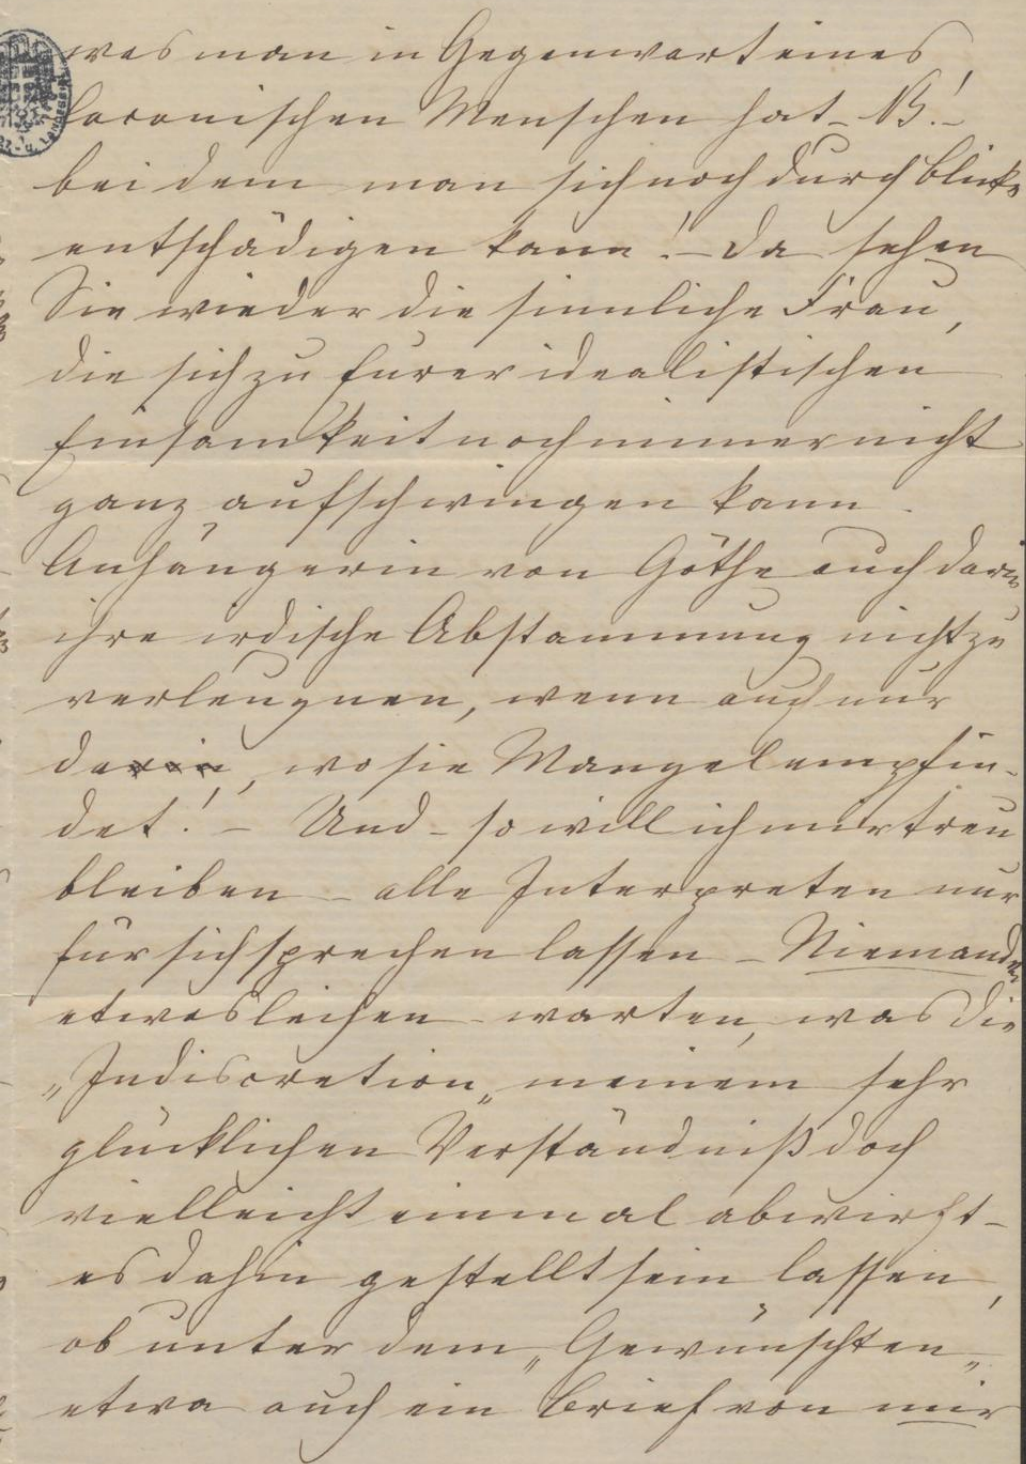 was man in Gegenwart eines
laconischen Menschen hat – NB! –
bei dem man sich noch durch Blicke
entschädigen kann! – Da sehen
Sie wieder die sinnliche Frau,
die sich zu Eurer idealistischen
Einsamkeit noch immer nicht
ganz aufschwingen kann.
Anhängerin von Göthe auch darin
ihre irdische Abstammung nicht zu
verleugnen, wenn auch nur
darin, wo sie Mangel empfin-
det! – Und – so will ich mir treu
bleiben – alle Interpreten nur
für sich sprechen lassen – Niemandem
etwas leihen – warten, was die
„Indiscretion„ meinem sehr
glücklichen Verständniß doch
vielleicht einmal abwirft –
es dahin gestellt sein lassen,
ob unter dem „Gewünschten„
etwa auch ein Brief von mir